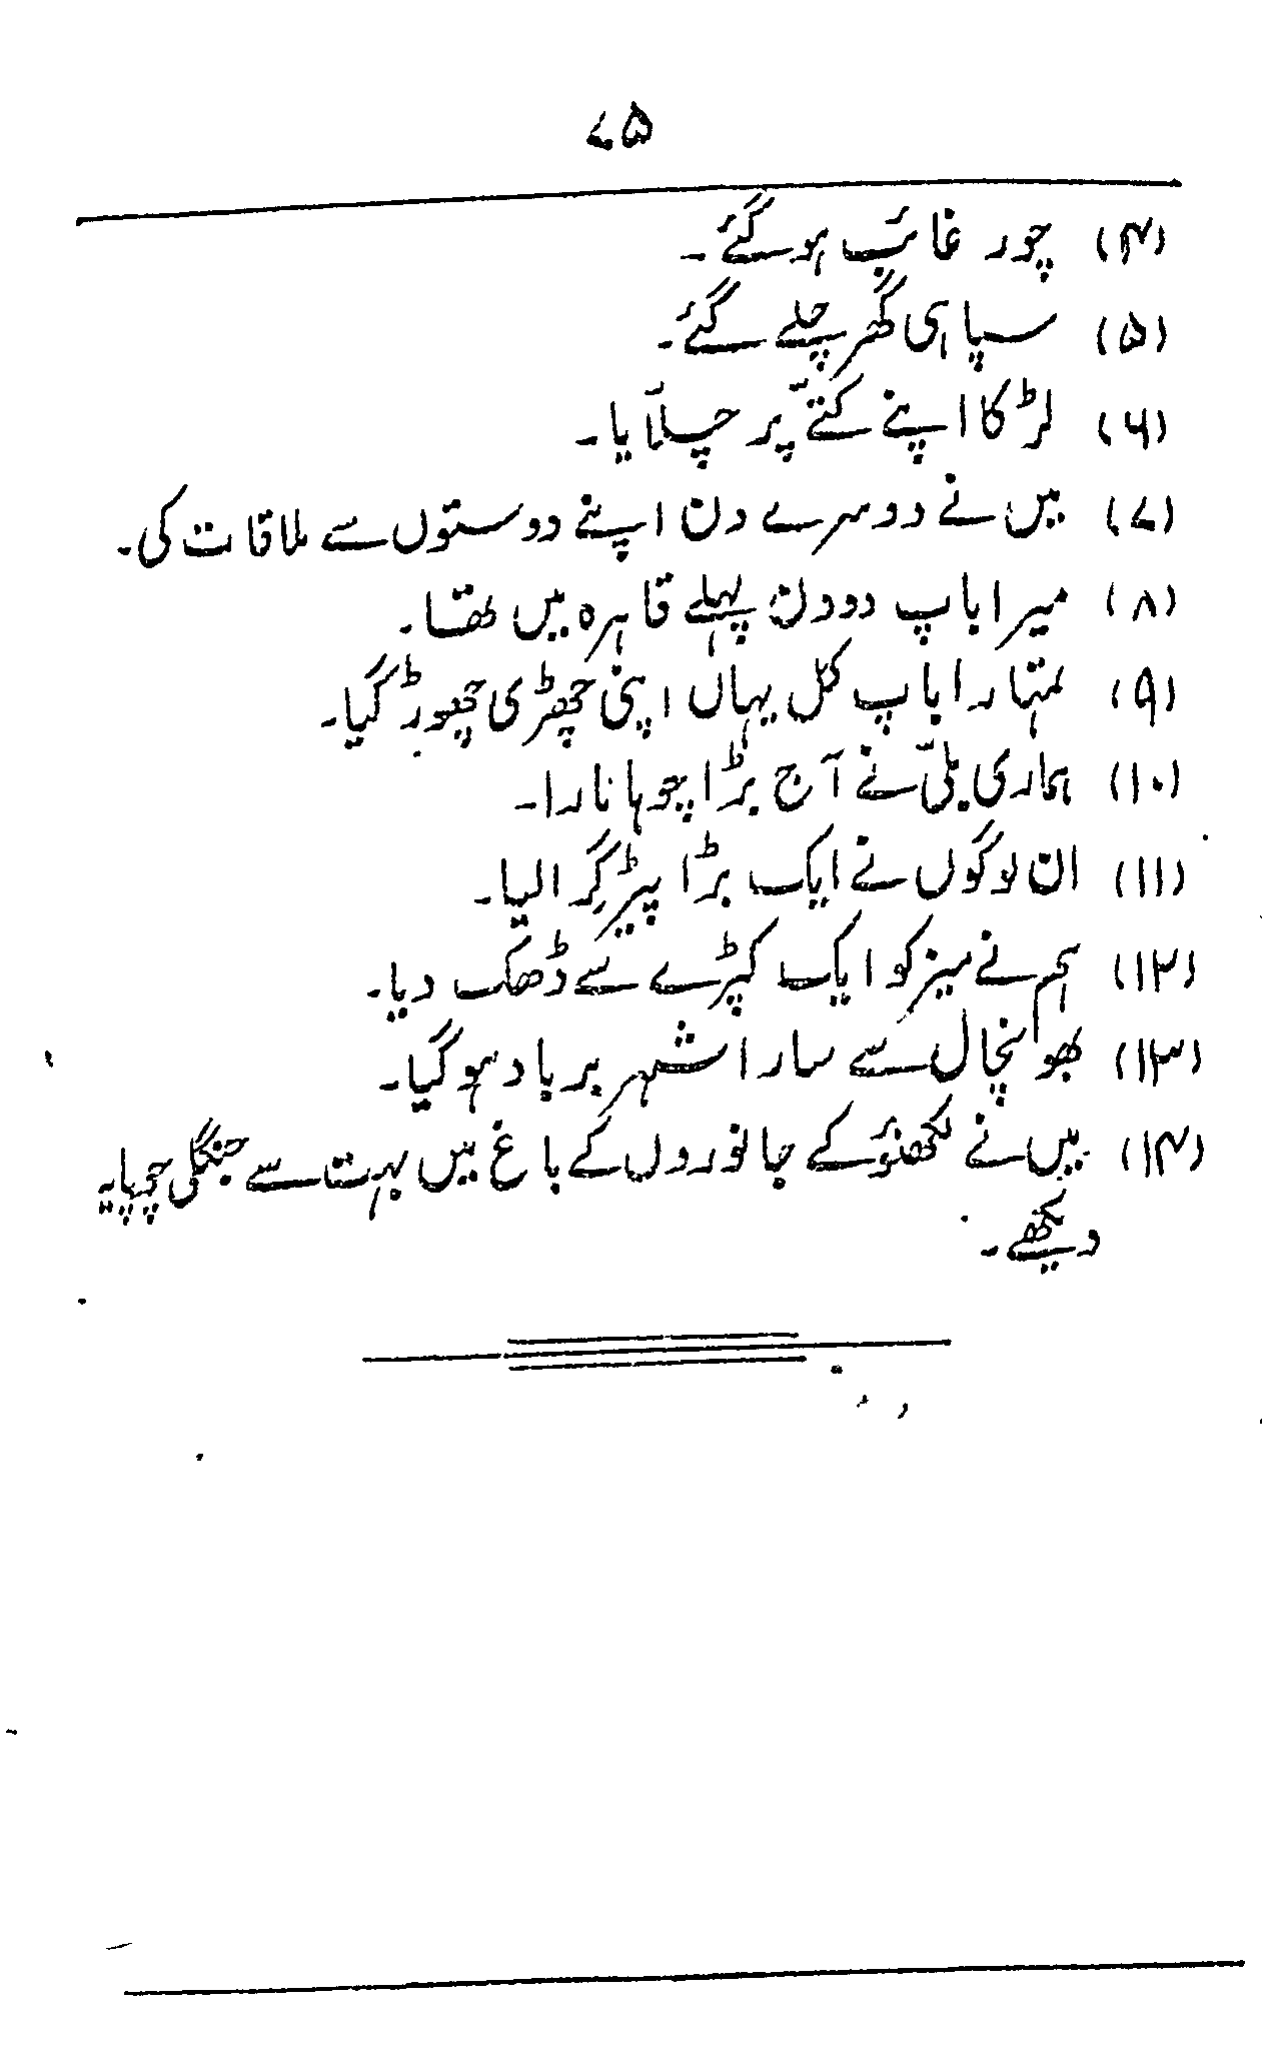 ۷۵
(۴) چور غائب ہو گئے۔
(۵) سپاہی گھر چلے گئے۔
(۶) لڑکا اپنے کتّے پر چلّایا۔
(۷) میں نے دوسرے دن اپنے دوستوں سے ملاقات کی۔
(۸) میرا باپ دو دن پہلے قاہرہ میں تھا۔
(۹) تمہارا باپ کل یہاں اپنی چھڑی چھوڑ گیا۔
(۱۰) ہماری بلّی نے آج بڑا چوہا مارا۔
(۱۱) ان لوگوں نے ایک بڑا پیڑ گِرا لیا۔
(۱۲) ہم نے میز کو ایک کپڑے سے ڈھک دیا۔
(۱۳) بھونچال سے سارا شہر برباد ہو گیا۔
(۱۴) میں نے لکھنؤ کے جانوروں کے باغ میں بہت سے جنگلی چوپایہ
دیکھے۔